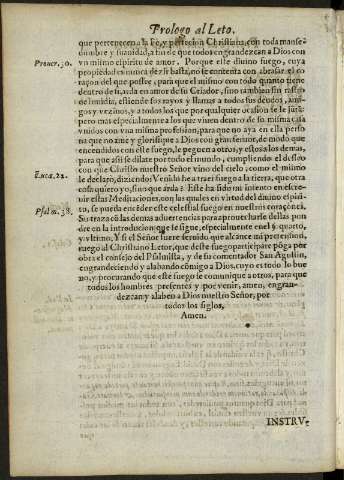 Prologo al Leto.
que pertenecen a la Fè, y perfecion Christiana, con toda manse-
dumbre y suauidad, a fin de que todos engrandezcan a Dios con
Prouer. 30. vn mismo espiritu de amor. Porque este diuino fuego, cuya
propiedad es nunca dezir basta, no se contenta con abrasar el co-
raçon del que possee, para que el mismo con todo quanto tiene
dentro de si, arda en amor de su Criador, sino tambien sin rastro
de inuidia, estiende sus rayos y llamas a todos sus deudos, ami-
gos y vezinos, y a todos los que por qualquier ocasion se le juntã:
pero mas especialmente a los que viuen dentro de su misma casa
vnidos con vna misma profession, para que no aya en ella perso
na que no ame y glorifique a Dios cõ gran feruor, de modo que
encendidos con este fuego, le peguen a otros, y estos a los demas,
para que assi se dilate por todo el mundo, cumpliendo el desseo
con que Christo nuestro Señor vino del cielo, como el mismo
Luca. 12. le declaro, diziendo: Veni è he a traer fuego a la tierra, que otra
cosa quiero yo, sino que arda? Este ha sido mi intento en escre-
uir estas Meditaciones, con las quales en virtud del diuino espiri-
Psalm. 38. tu, se pueda encẽder este celestial fuego en nuestros coraçones.
Su traza cõ las demas aduertencias para prouecharse dellas pon
dre en la introducion que se sigue, especialmente en el §. quarto,
y vltimo. Y si el Señor fuere seruido, que alcance mi pretension,
ruego al Christiano Letor, que deste fuego participàre põga por
obra el consejo del Psalmista, y de su comentador San Agustin,
engrandeciendo y alabando cõmigo a Dios, cuyo es todo lo bue
no, y procurando que este fuego se comunique a otros, para que
todos los hombres presentes y por venir, amen, engran-
dezcan y alaben a Dios nuestro Señor, por
todos los siglos,
Amen.
INSTRV-